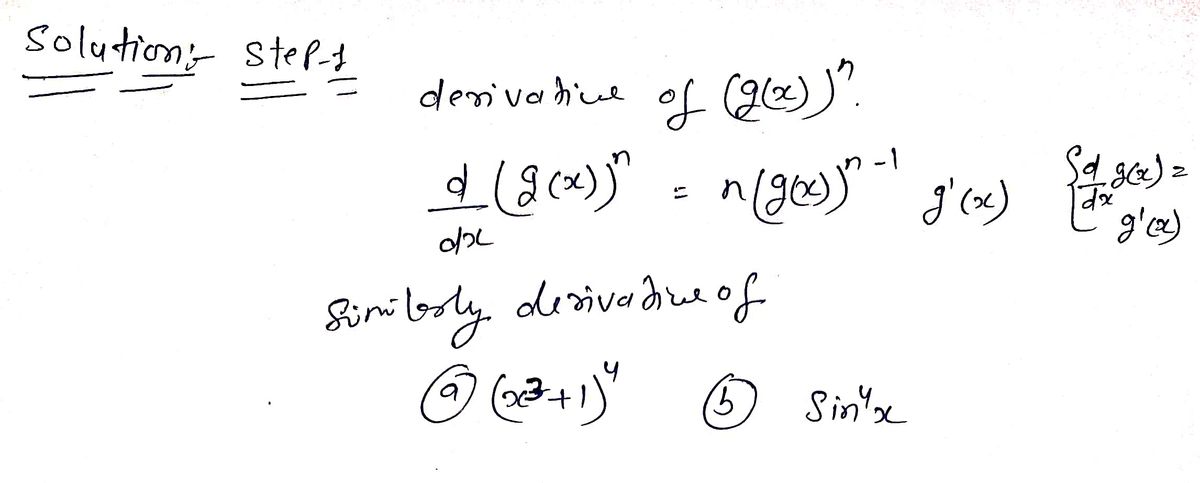 Solution:- Step-1
derivative of (g(x))ⁿ.
d/dx (g(x))ⁿ = n(g(x))ⁿ⁻¹ g'(x) {d/dx g(x) = g'(x)
Similarly derivative of
ⓐ (x³+1)⁴ ⓑ Sin⁴x